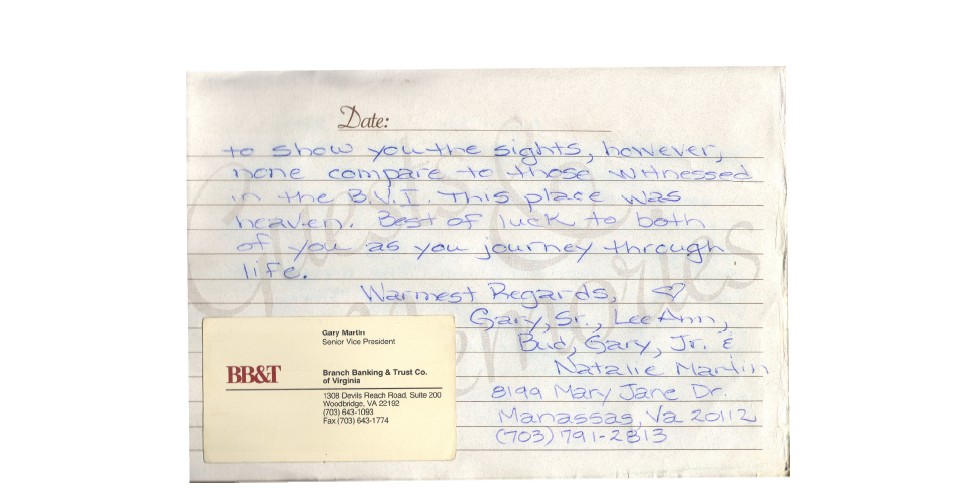 Date:
to show you the sights, however,
none compare to those witnessed
in the B.V.I. This place was
heaven. Best of luck to both
of you as you journey through
life.
Warmest Regards, ♡
Gary, Sr., LeeAnn,
Bud, Gary, Jr. &
Natalie Martin
8199 Mary Jane Dr.
Manassas, Va 20112
(703) 791-2813
Guests & Memories
Gary Martin
Senior Vice President
BB&T
Branch Banking & Trust Co.
of Virginia
1308 Devils Reach Road, Suite 200
Woodbridge, VA 22192
(703) 643-1093
Fax (703) 643-1774